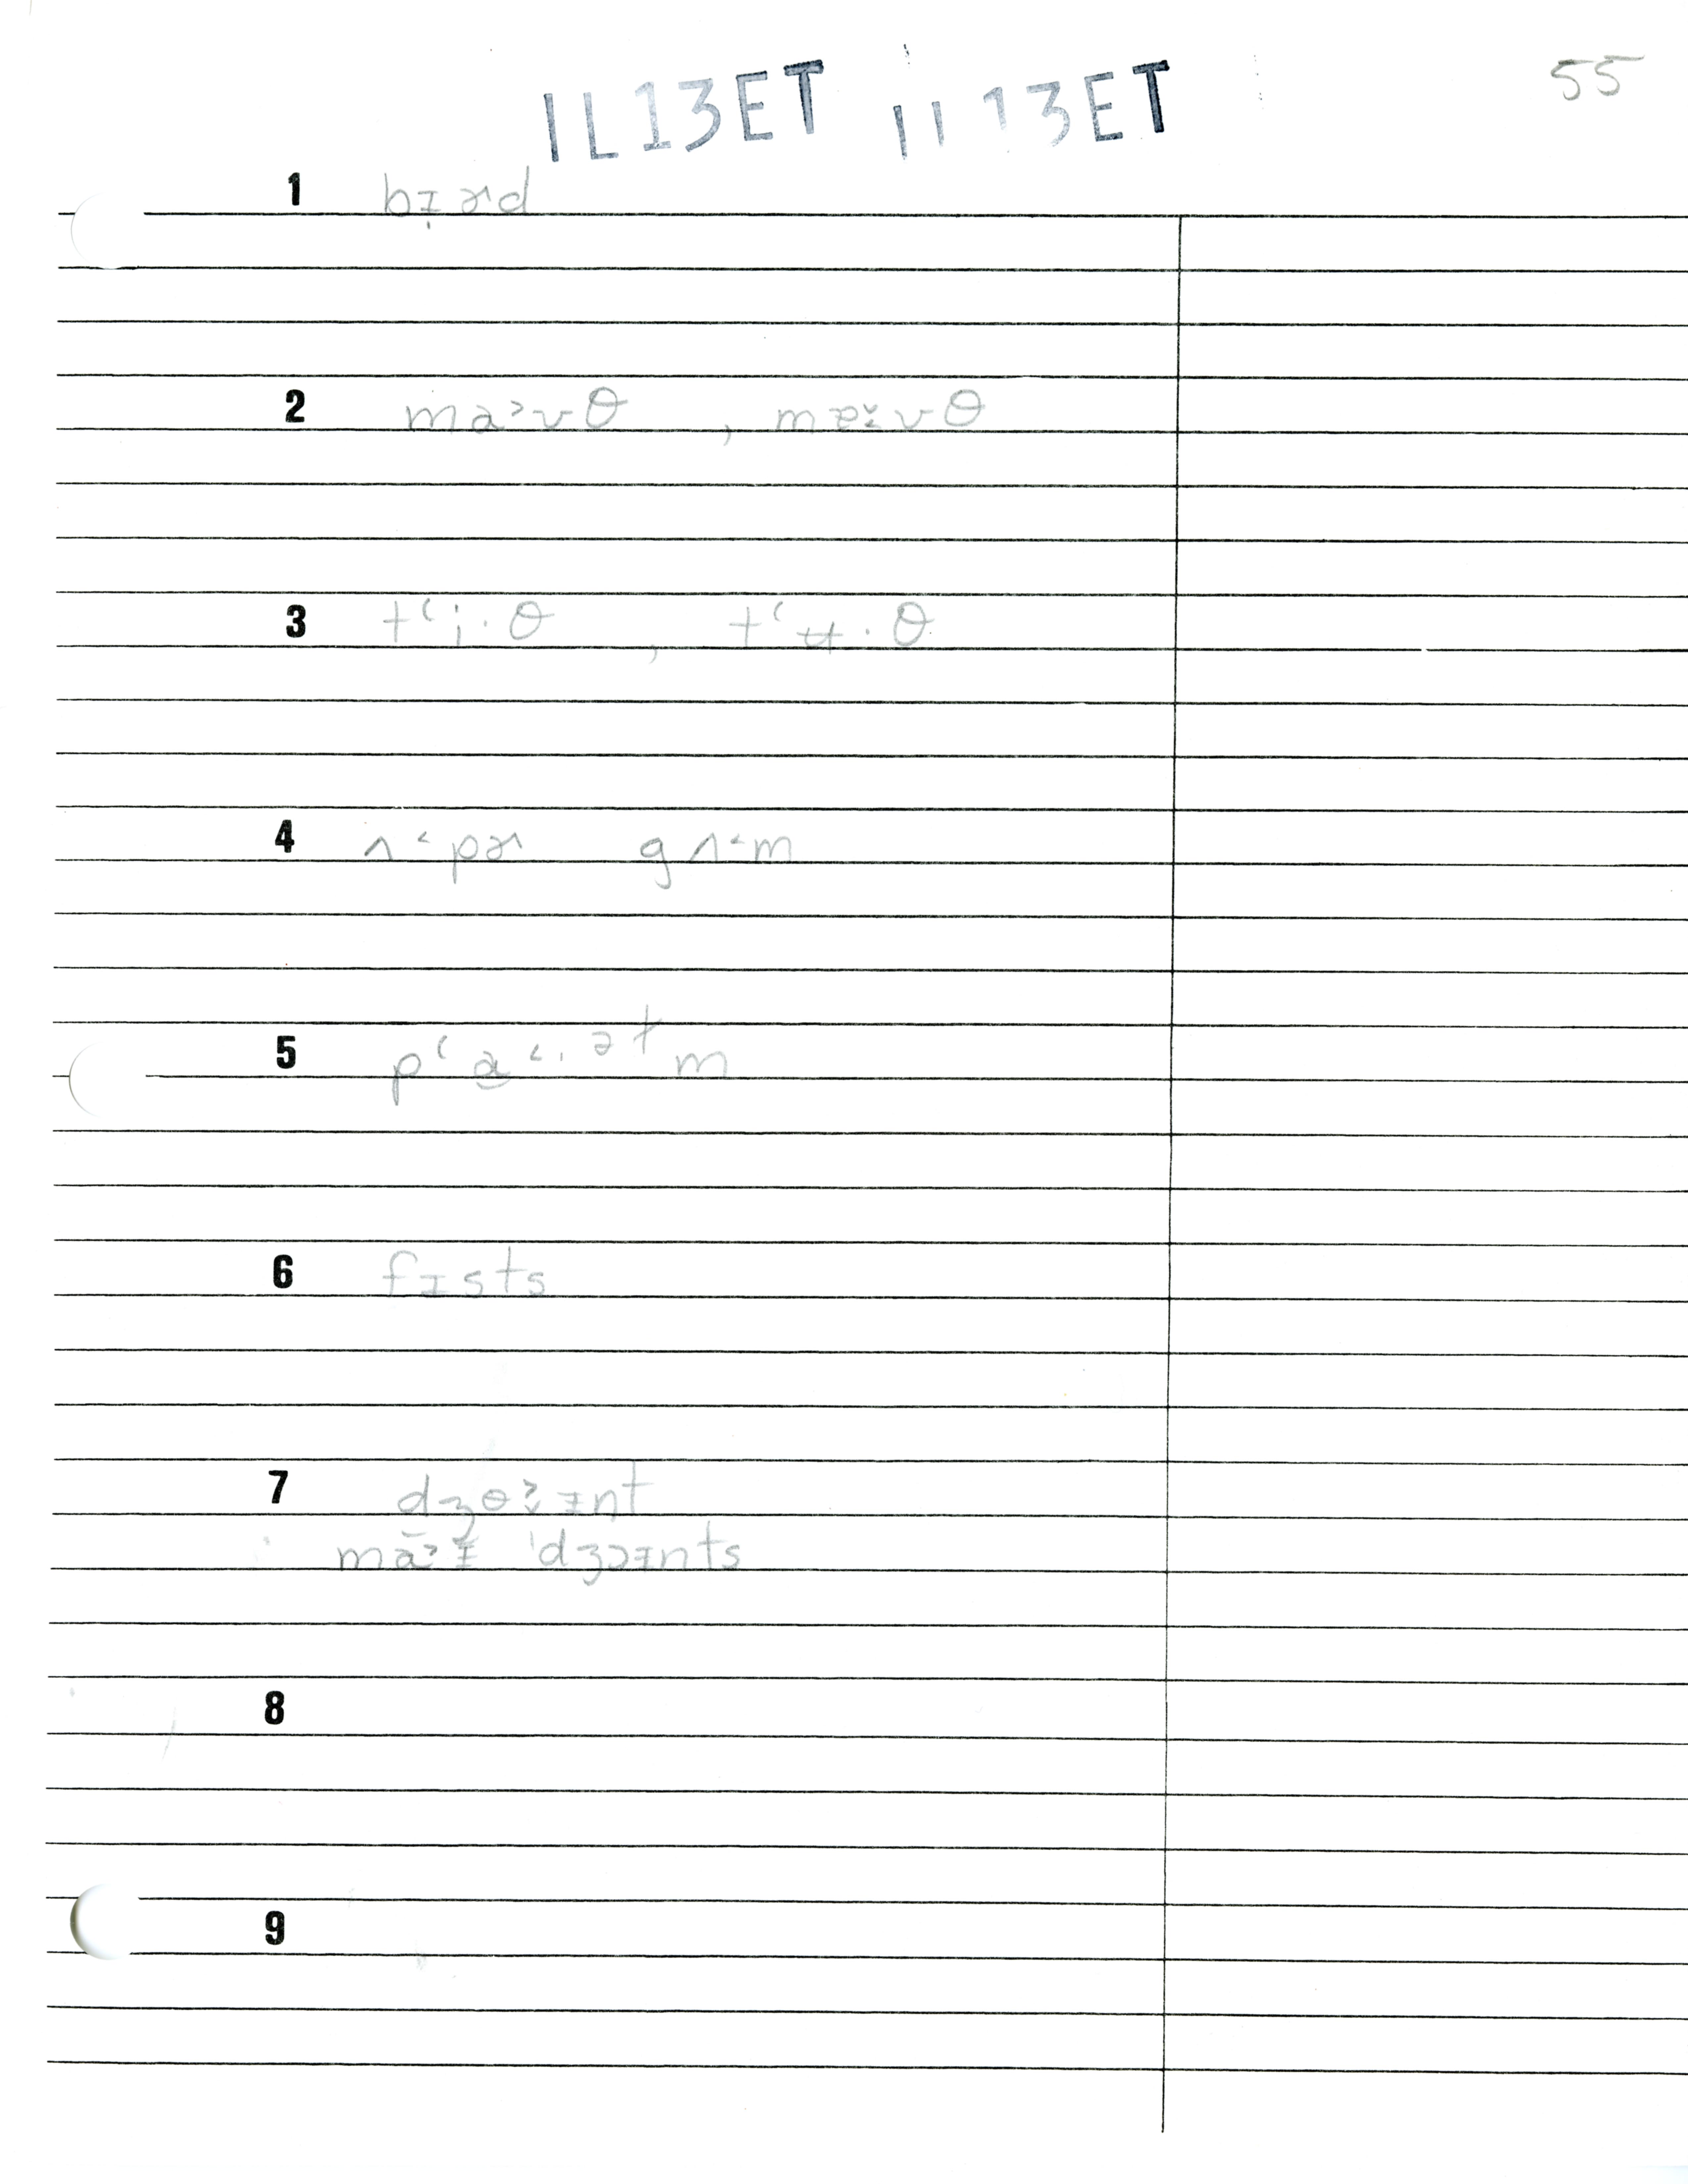 IL13ET II 13ET 55
1 bɪ̣ɚd
2 ma˃vθ , mɐ˃̌vθ
3 tʻi·θ , tʻʉ·θ
4 ʌ˂pɚ gʌ˂m
5 pʻa̲˂·ᵊᵗm
6 fɪsts
7 dʒɵ˃̬ɪnt
mã˃ɪ̆ ˈdʒɔɪnts
8
9